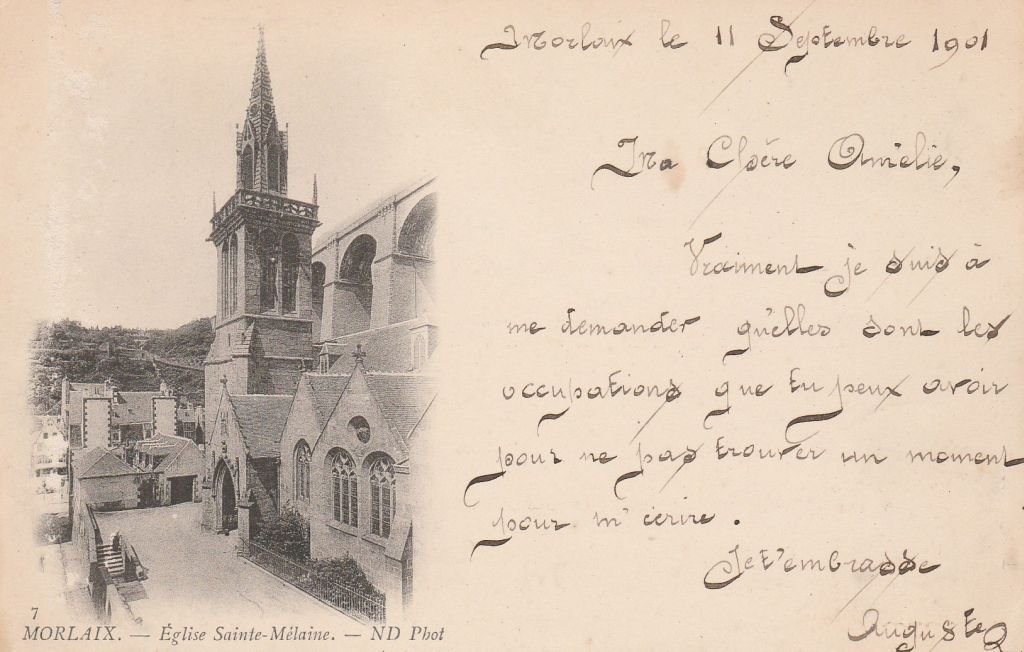 Morlaix le 11 Septembre 1901
Ma Chère Amélie,
Vraiment je suis à
me demander qu'elles sont les
occupations que tu peux avoir
pour ne pas trouver un moment
pour m'écrire.
Je t'embrasse
Auguste
7
MORLAIX. — Église Sainte-Mélaine. — ND Phot